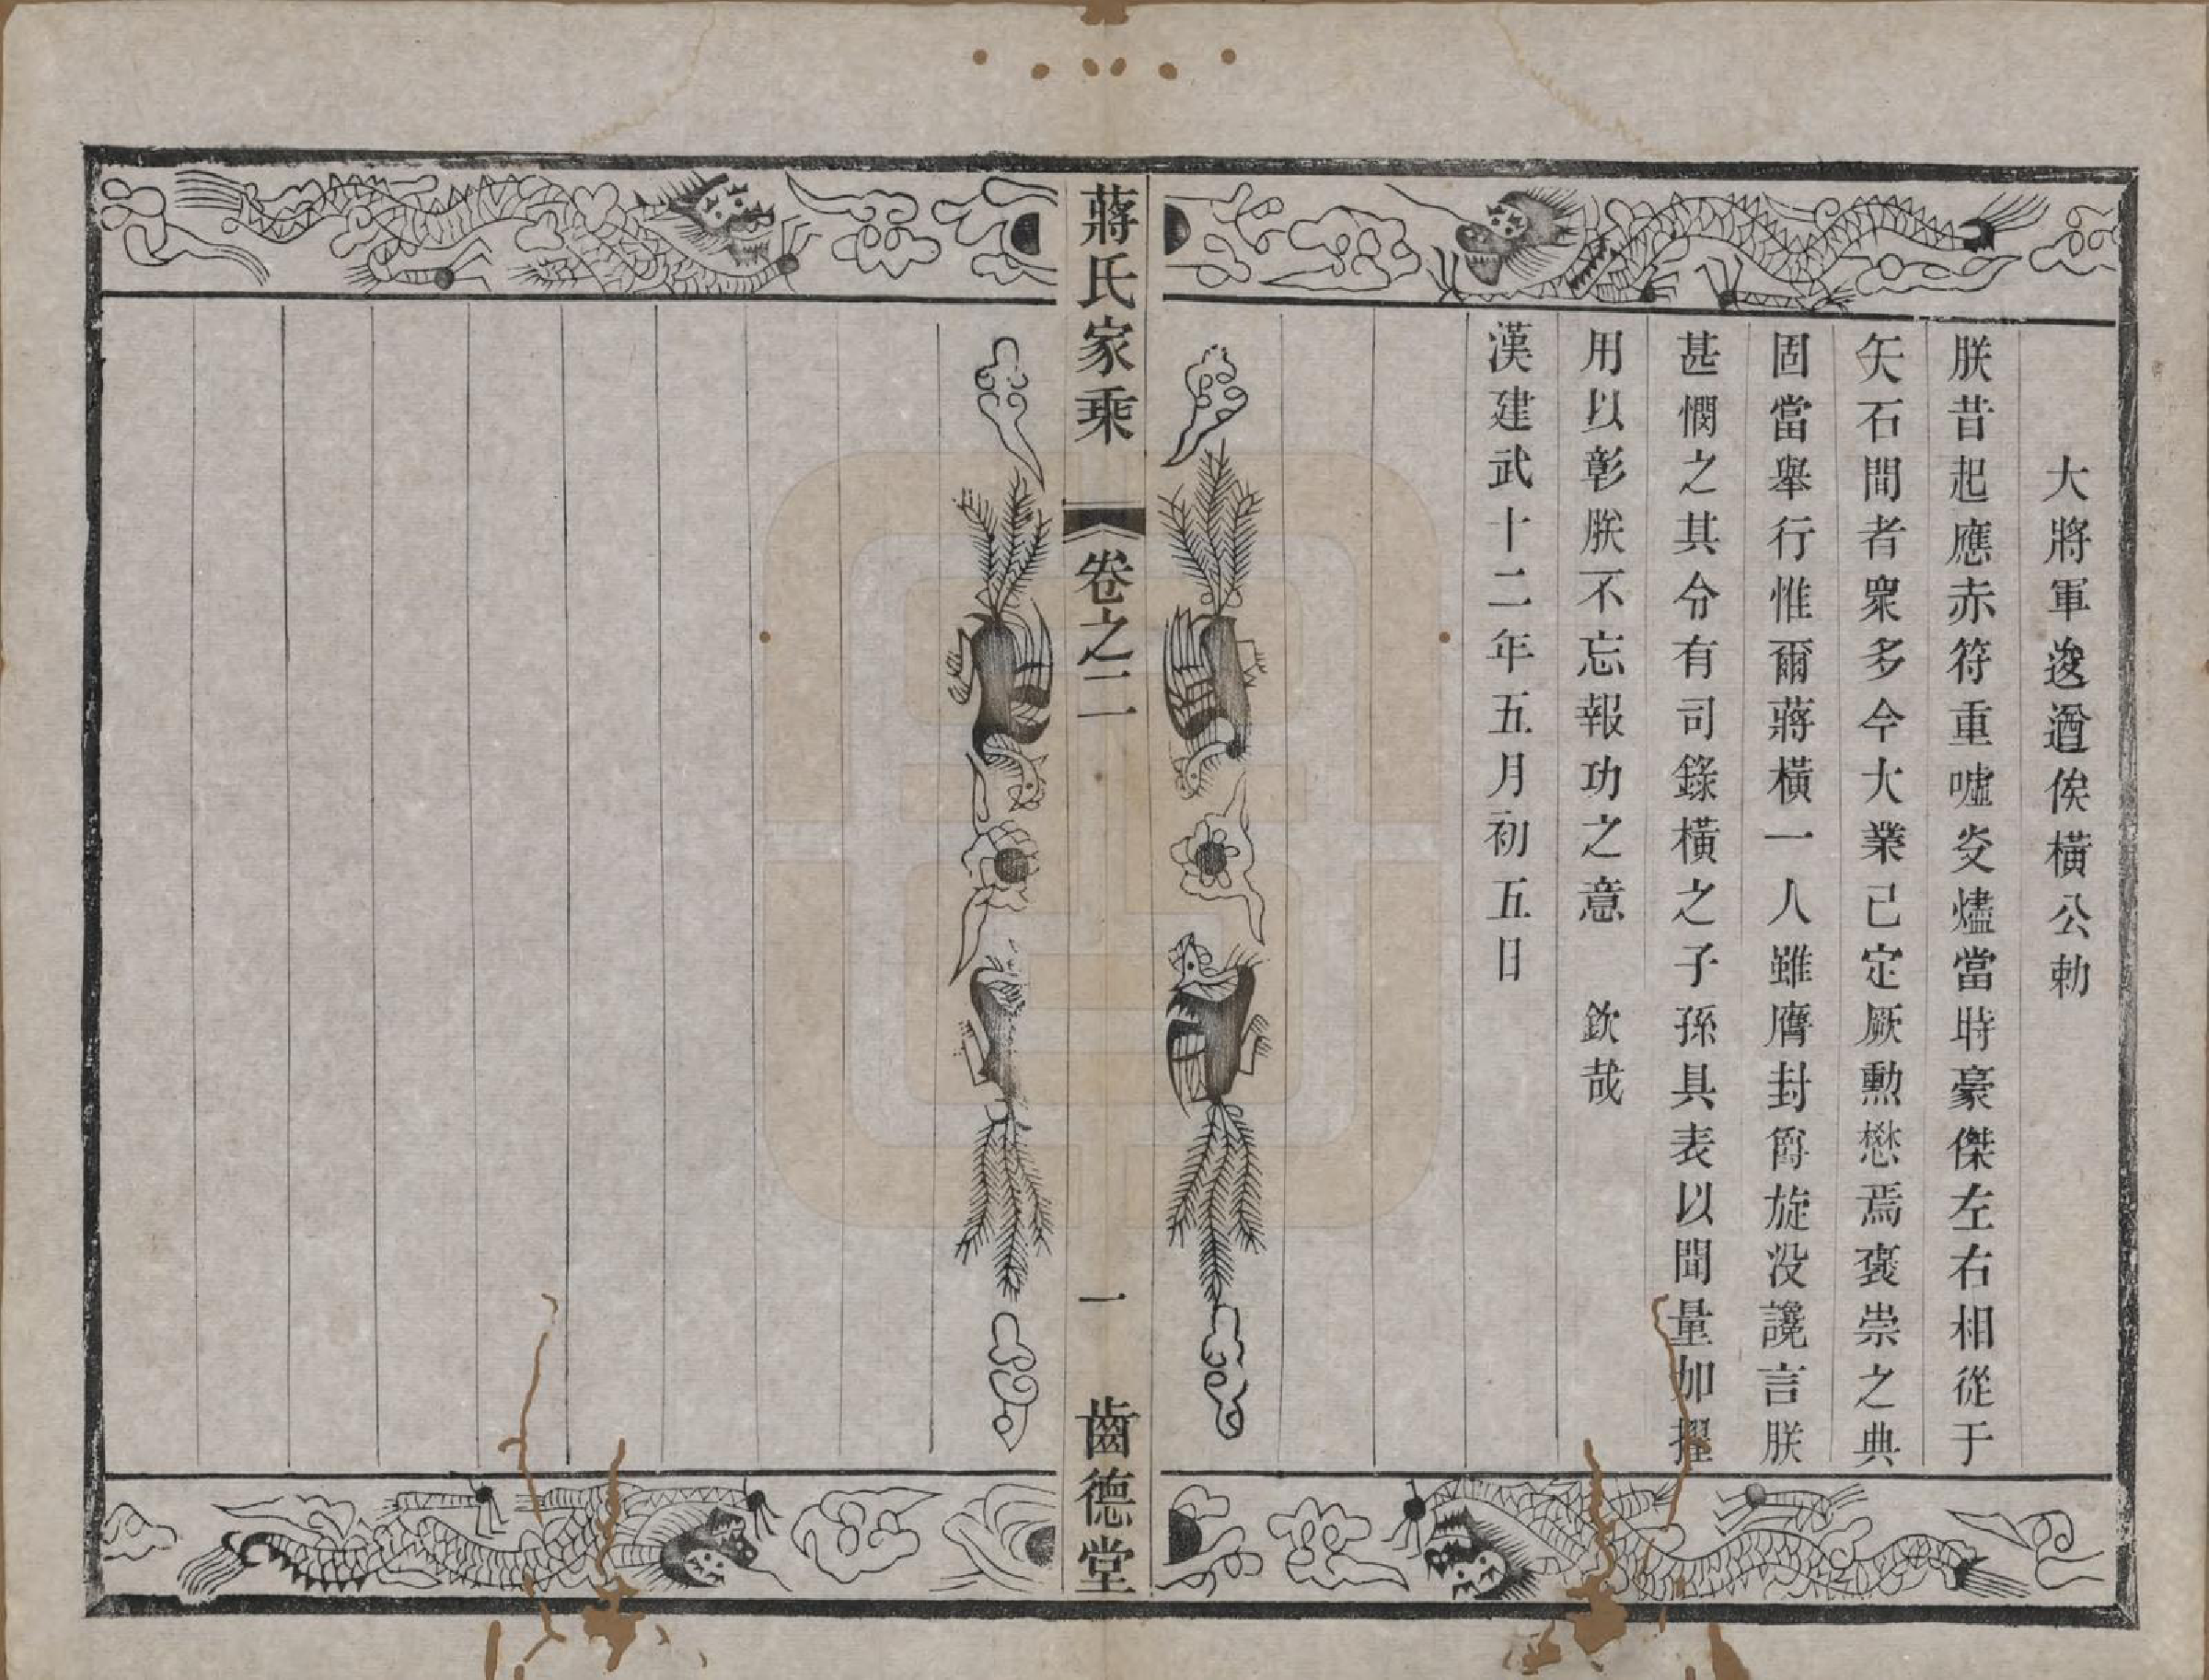 大將軍逡遒侯橫公勅
朕昔起應赤符重噓炎燼當時豪傑左右相從于
矢石間者衆多今大業已定厥勳懋焉褒崇之典
固當舉行惟爾蔣橫一人雖膺封爵旋没讒言朕
甚憫之其分有司錄橫之子孫具表以聞量加擢
用以彰朕不忘報功之意　欽哉
漢建武十二年五月初五日
蔣氏家乘　卷之二　一　齒德堂